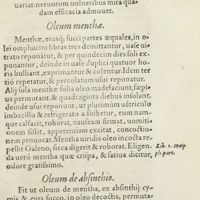 uariat. neruorum vulneribus mira quadam
dam efficacia admouet.
Oleum menthæ.
Menthæ, eiusq́; succi partes æquales, in o
lei omphacini libras tres demittantur, uase ui
treato reponatur, & per quindecim dies soli ex
ponantur, deinde in uase duplici quatuor ho
ris bulliant, exprimantur & colentur. Idem ter
tio repetatur, & percolatum usui reponatur.
Alij sola menthæ folia oleo madefaciunt, sæpiùs
permutant, & quadraginta diebus insolant.
deinde usui reponunt, ut plurimum uẽtriculo
imbecillo & refrigerato adhibetur, eum nam
que calfacit, roborat, nauseam firmat, uomiti
ones sistit, appetentiam excitat, concoctio
nem prouocat. Mentha uiridis oleo incocta re
pellit Galeno, sicca digerit & roborat. Eligen.
da uerò mentha quæ crispa, & satiua dicitur,
Lib. 2. comp
ph. part.
grandifolia.
Oleum de absinthio.
Fit ut oleum de mentha, ex absinthij cy
mis & eius succo, in oleo decoctis, permuta-